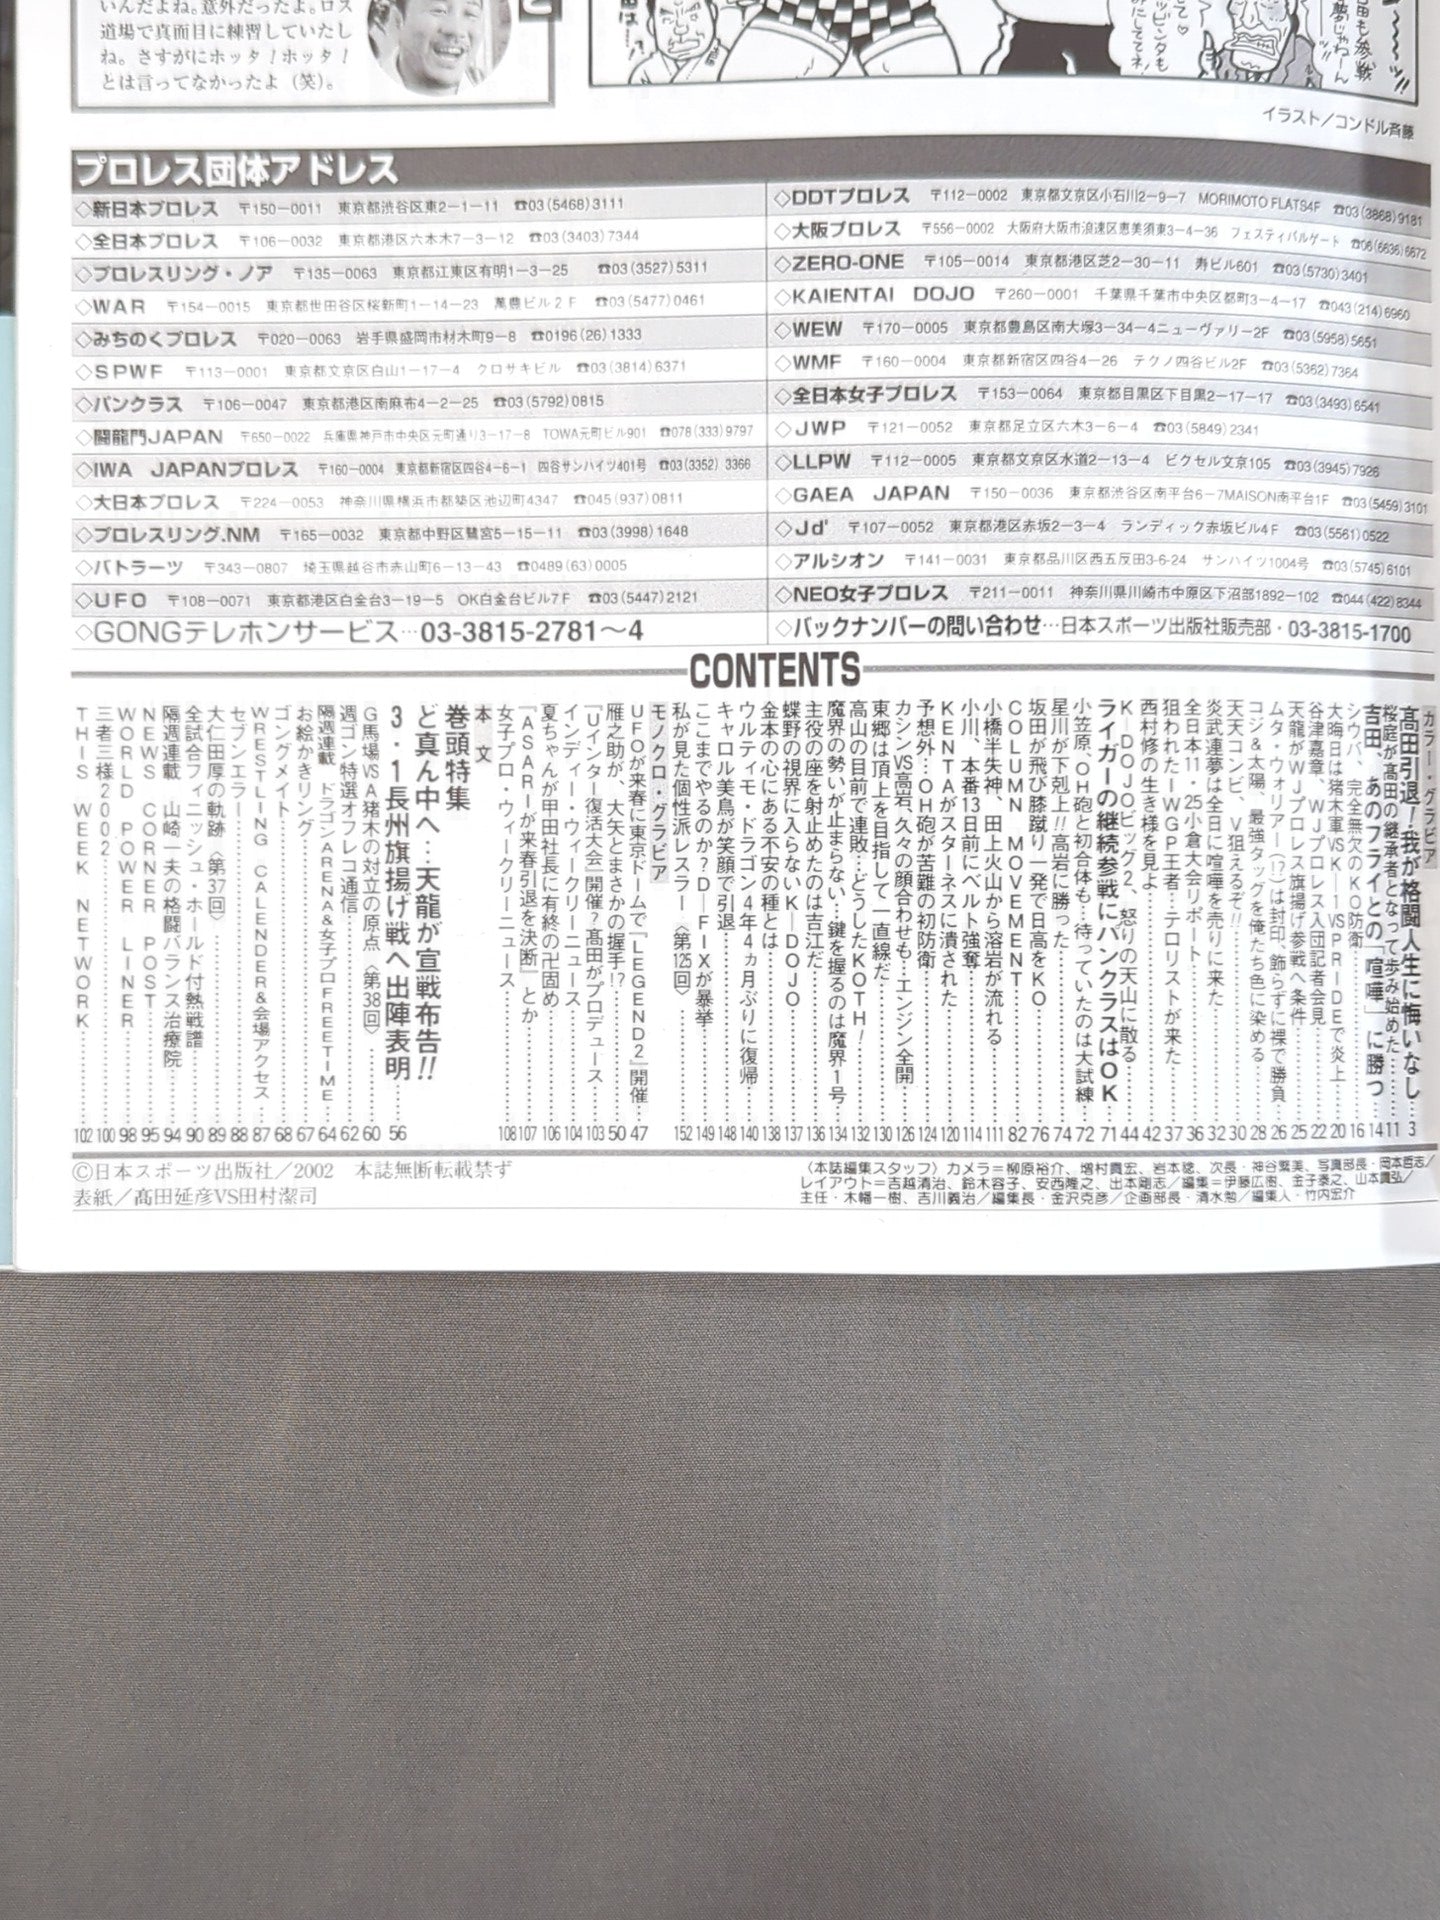 いんだよね。意外だったよ。ロス
道場で真面目に練習していたし
ね。さすがにホッタ！ホッタ！
とは言ってなかったよ（笑）。
イラスト／コンドル斉藤
プロレス団体アドレス
◇新日本プロレス 〒150－0011 東京都渋谷区東2－1－11 ☎03(5468)3111
◇全日本プロレス 〒106－0032 東京都港区六本木7－3－12 ☎03(3403)7344
◇プロレスリング・ノア 〒135－0063 東京都江東区有明1－3－25 ☎03(3527)5311
◇WAR 〒154－0015 東京都世田谷区桜新町1－14－23 萬豊ビル2F ☎03(5477)0461
◇みちのくプロレス 〒020－0063 岩手県盛岡市材木町9－8 ☎0196(26)1333
◇SPWF 〒113－0001 東京都文京区白山1－17－4 クロサキビル ☎03(3814)6371
◇パンクラス 〒106－0047 東京都港区南麻布4－2－25 ☎03(5792)0815
◇闘龍門JAPAN 〒650－0022 兵庫県神戸市中央区元町通り3－17－8 TOWA元町ビル901 ☎078(333)9797
◇IWA JAPANプロレス 〒160－0004 東京都新宿区四谷4－6－1 四谷サンハイツ401号 ☎03(3352)3366
◇大日本プロレス 〒224－0053 神奈川県横浜市都築区池辺町4347 ☎045(937)0811
◇プロレスリング.NM 〒165－0032 東京都中野区鷺宮5－15－11 ☎03(3998)1648
◇バトラーツ 〒343－0807 埼玉県越谷市赤山町6－13－43 ☎0489(63)0005
◇UFO 〒108－0071 東京都港区白金台3－19－5 OK白金台ビル7F ☎03(5447)2121
◇GONGテレホンサービス…03-3815-2781～4
◇DDTプロレス 〒112－0002 東京都文京区小石川2－9－7 MORIMOTO FLATS4F ☎03(3868)9181
◇大阪プロレス 〒556－0002 大阪府大阪市浪速区恵美須東3－4－36 フェスティバルゲート ☎06(6636)6672
◇ZERO-ONE 〒105－0014 東京都港区芝2－30－11 寿ビル601 ☎03(5730)3401
◇KAIENTAI DOJO 〒260－0001 千葉県千葉市中央区都町3－4－17 ☎043(214)6960
◇WEW 〒170－0005 東京都豊島区南大塚3－34－4ニューヴァリー2F ☎03(5958)5651
◇WMF 〒160－0004 東京都新宿区四谷4－26 テクノ四谷ビル2F ☎03(5362)7364
◇全日本女子プロレス 〒153－0064 東京都目黒区下目黒2－17－17 ☎03(3493)6541
◇JWP 〒121－0052 東京都足立区六木3－6－4 ☎03(5849)2341
◇LLPW 〒112－0005 東京都文京区水道2－13－4 ビクセル文京105 ☎03(3945)7926
◇GAEA JAPAN 〒150－0036 東京都渋谷区南平台6－7MAISON南平台1F ☎03(5459)3101
◇Jd' 〒107－0052 東京都港区赤坂2－3－4 ランディック赤坂ビル4F ☎03(5561)0522
◇アルシオン 〒141－0031 東京都品川区西五反田3-6-24 サンハイツ1004号 ☎03(5745)6101
◇NEO女子プロレス 〒211－0011 神奈川県川崎市中原区下沼部1892－102 ☎044(422)8344
◇バックナンバーの問い合わせ…日本スポーツ出版社販売部・03-3815-1700
CONTENTS
カラー・グラビア
髙田引退！我が格闘人生に悔いなし…3
桜庭が髙田の継承者となって歩み始めた…11
吉田、あのフライとの「喧嘩」に勝つ…14
シウバ、完全無欠のKO防衛…16
大晦日は猪木軍VSK－1VSPRIDEで炎上…20
谷津嘉章、WJプロレス入団記者会見…22
天龍がWJプロレス旗揚げ参戦へ条件…25
ムタ・ウォリアー（!?）は封印、飾らずに裸で勝負…26
コジ＆太陽、最強タッグを俺たち色に染める…28
天天コンビ、V狙えるぞ!!…30
炎武連夢は全日に喧嘩を売りに来た…32
全日本11・25小倉大会リポート…36
狙われたIWGP王者…テロリストが来た…37
西村修の生き様を見よ…42
K－DOJOビッグ2、怒りの天山に散る…44
ライガーの継続参戦にパンクラスはOK…71
小笠原、OH砲と初合体も…待っていたのは大試練…72
星川が下剋上!!高岩に勝った…74
坂田が飛び膝蹴り一発で日高をKO…76
COLUMN MOVEMENT…82
小橋半失神、田上火山から溶岩が流れる…111
小川、本番13日前にベルト強奪…114
KENTAがスターネスに潰された…120
予想外…OH砲が苦難の初防衛…124
カシンVS高岩、久々の顔合わせも…エンジン全開…126
東郷は頂上を目指して一直線だ…130
高山の目前で連敗…どうしたKOTH！…132
魔界の勢いが止まらない…鍵を握るのは魔界1号…134
主役の座を射止めたのは吉江だ…136
蝶野の視界に入らないK－DOJO…137
金本の心にある不安の種とは…138
ウルティモ・ドラゴン4年4ヵ月ぶりに復帰…140
キャロル美鳥が笑顔で引退…148
ここまでやるのか？D－FIXが暴挙…149
私が見た個性派レスラー〈第125回〉…152
モノクロ・グラビア
UFOが来春に東京ドームで『LEGEND2』開催…47
雁之助が、大矢とまさかの握手!?…50
「Uインター復活大会」開催？髙田がプロデュース…103
インディー・ウィークリーニュース…104
夏ちゃんが甲田社長に有終の卍固め…106
「ASARIが来春引退を決断」とか…107
女子プロ・ウィークリーニュース…108
本文
巻頭特集
ど真ん中へ…天龍が宣戦布告!!
3・1長州旗揚げ戦へ出陣表明…56
G馬場VSA猪木の対立の原点〈第38回〉…60
週ゴン特選オフレコ通信…62
隔週連載 ドラゴンARENA&女子プロFREETIME…64
お絵かきリング…67
ゴングメイト…68
WRESTLING CALENDER&会場アクセス…87
セブンエラー…88
大仁田厚の軌跡〈第37回〉…89
全試合フィニッシュ・ホールド付熱戦譜…90
隔週連載 山崎一夫の格闘バランス治療院…94
NEWS CORNER POST…95
WORLD POWER LINER…98
三者三様2002…100
THIS WEEK NETWORK…102
©日本スポーツ出版社／2002 本誌無断転載禁ず
表紙／髙田延彦VS田村潔司
〈本誌編集スタッフ〉カメラ＝柳原裕介、増村貴宏、岩本稔、次長・神谷繁美、写真部長・岡本哲志／
レイアウト＝吉越清治、鈴木容子、安西隆之、出本剛志／編集＝伊藤広樹、金子泰之、山本貴弘／
主任・木幡一樹、吉川義治／編集長・金沢克彦／企画部長・清水勉／編集人・竹内宏介